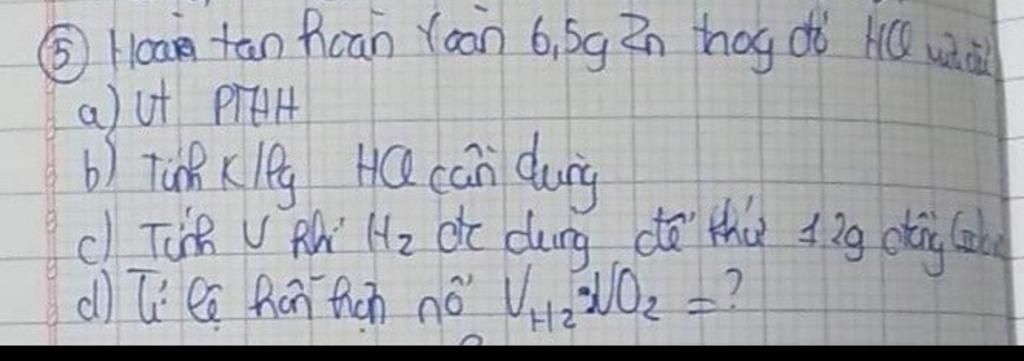 ⑤ Hoàn tan hoàn toàn 6,5g Zn trog dd HCl vừa đủ
a) Vt PTHH
b) Tính K/lg HCl cần dùng
c) Tính V khí H2 đc dùng để thử 12g đồng
d) Tỉ lệ hỗn hợp nổ VH2:VO2 = ?